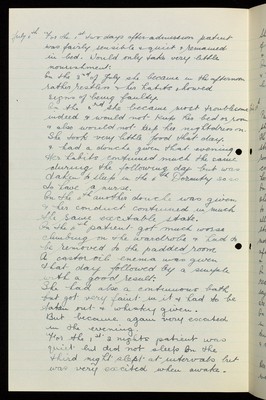 July 6th For the 1st two days after admission patient
was fairly sensible & quiet & remained
in bed. Would only take very little
nourishment.
On the 3rd of July she became in the afternoon
rather restless & her habits showed
signs of being faulty.
On the 3rd she became most troublesome
indeed & would not keep her bed or room
& also would not keep her nightdress on.
She took very little food that day.
& had a douche given that evening
Her habits continued much the same
during the following day but was
taken to sleep in the Dormitry
to have a nurse.
On the 5th another douche was given
& her conduct continued in much
the same excitable state.
On the 6th patient got much worse
climbing on the wardrobe & had to
be removed to the padded room
A castor oil enema was given
that day followed by a simple
with a good result
She had also a continuous bath
but got very faint in it & had to be
taken out & whiskey given.
But became again very excited
in the evening.
For the 1st 2 nights patient was
quiet but did not sleep. On the
third night slept at intervals but
was very excited when awake.